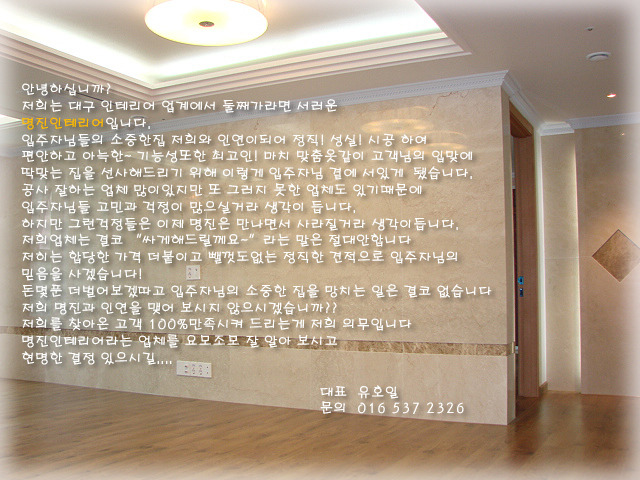 안녕하십니까?
저희는 대구 인테리어 업계에서 둘째가라면 서러운
명진인테리어입니다.
입주자님들의 소중한집 저희와 인연이되어 정직! 성실! 시공 하여
편안하고 아늑한~ 기능성또한 최고인! 마치 맞춤옷같이 고객님의 입맞에
딱맞는 집을 선사해드리기 위해 이렇게 입주자님 곁에 서있게 됐습니다.
공사 잘하는 업체 많이있지만 또 그러지 못한 업체도 있기때문에
입주자님들 고민과 걱정이 많으실거라 생각이 듭니다.
하지만 그런걱정들은 이제 명진은 만나면서 사라질거라 생각이듭니다.
저희업체는 결코 “싸게해드릴께요~”라는 말은 절대안합니다
저희는 합당한 가격 더붙이고 뺄껏도없는 정직한 견적으로 입주자님의
믿음을 사겠습니다!
돈몇푼 더벌어보겠따고 입주자님의 소중한 집을 망치는 일은 결코 없습니다
저희 명진과 인연을 맺어 보시지 않으시겠습니까??
저희를 찾아온 고객 100%만족시켜 드리는게 저희 의무입니다
명진인테리어라는 업체를 요모소모 잘 알아 보시고
현명한 결정 있으시길,,,,
대표 유호일
문의 016 537 2326